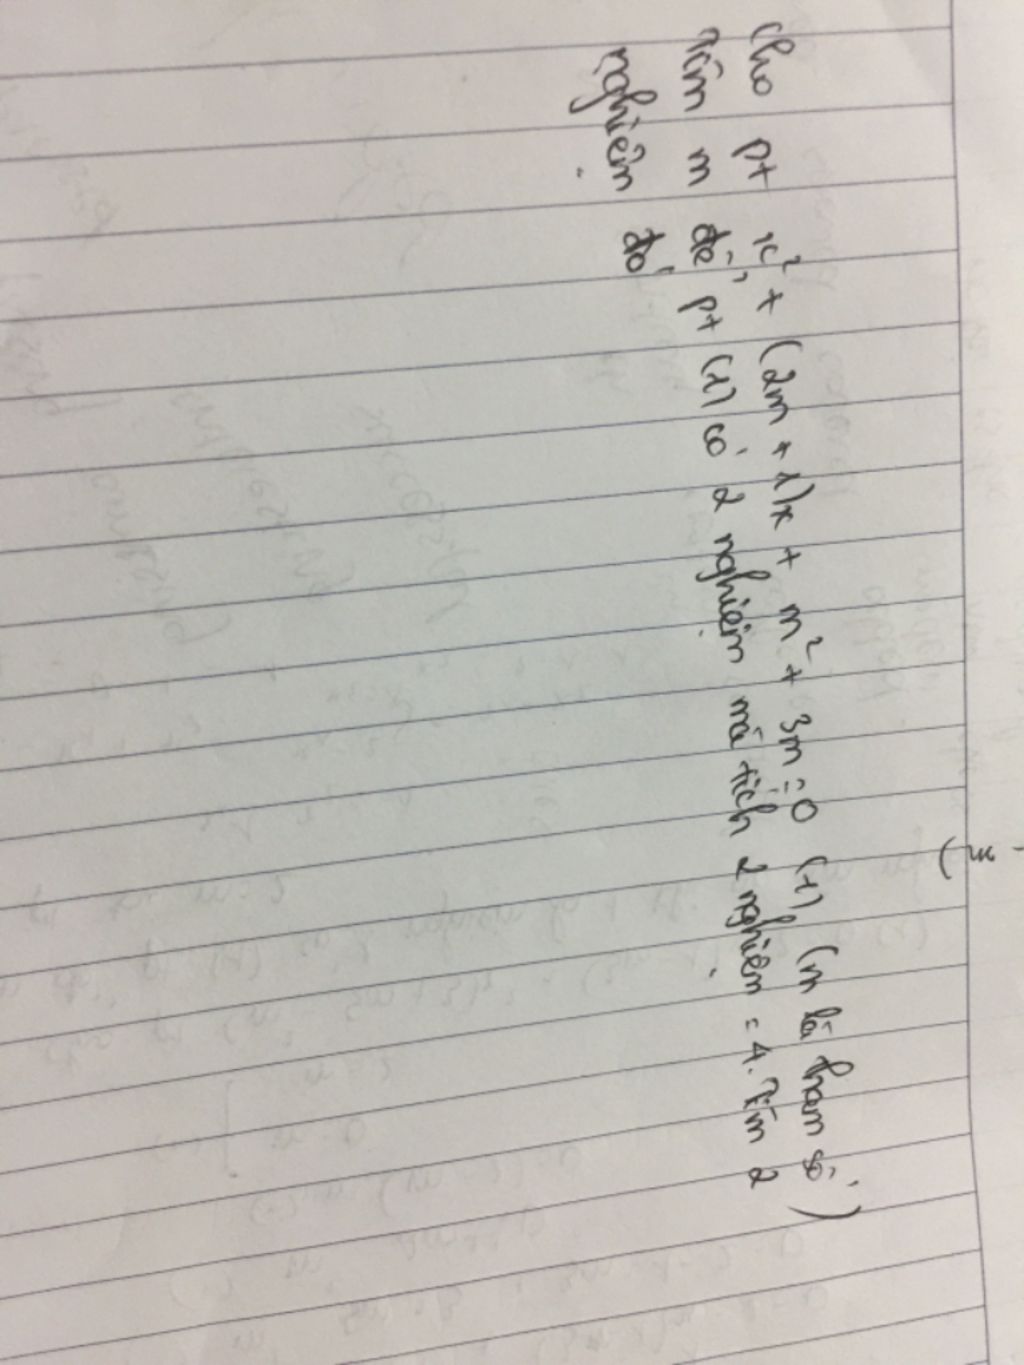 cho pt x² + (2m + 1)x + m² + 3m = 0 (1) (m là tham số)
Tìm m để pt (1) có 2 nghiệm mà tích 2 nghiệm = 4. Tìm 2
nghiệm đó